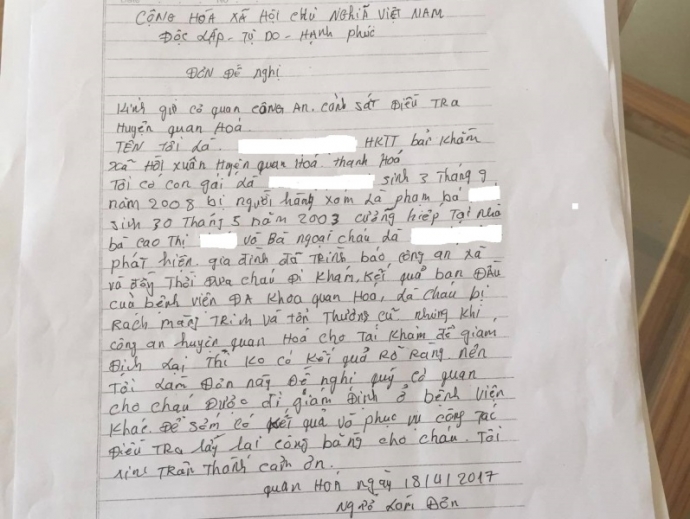 CỘNG HÓA XÃ HỘI CHỦ NGHĨA VIỆT NAM
ĐỘC LẬP - TỰ DO - HẠNH PHÚC
ĐƠN ĐỀ NGHỊ
Kính gửi cơ quan CÔNG AN. Cảnh SÁT ĐIỀU TRA
Huyện quan Hoá.
TÊN Tôi Là. HKTT bản Khằm
Xã Hồi Xuân Huyện quan Hoá Thanh Hoá
Tôi có con gái Là sinh 3 Tháng 9
năm 2008 bị người hàng xóm Là phạm bá
sinh 30 Tháng 5 năm 2003 cưỡng hiếp Tại nhà
bà cao Thị và Bà ngoại cháu Là
phát hiện. gia đình đã TRình báo, công an xã
và đồng Thời ĐƯa cháu Đi Khám, Kết quả ban ĐẦu
của bệnh viện ĐA Khoa quan Hoá, Là cháu bị
Rách màng TRinh và tổn Thương cũ nhưng Khi,
công an huyện quan Hoá cho Tái Khám để giám
Định Lại Thì Ko có Kết quả Rõ Ràng nên
Tôi Làm Đơn này Đề nghị quý cơ quan
cho cháu Được đi giám Định ở bệnh Viện
Khác Để sớm có Kết quả và phục vụ công Tác
Điều TRa Lấy Lại công bằng cho cháu. Tôi
xin TRân Thành cảm ơn.
quan Hoá ngày 18/4/2017
Người Làm Đơn